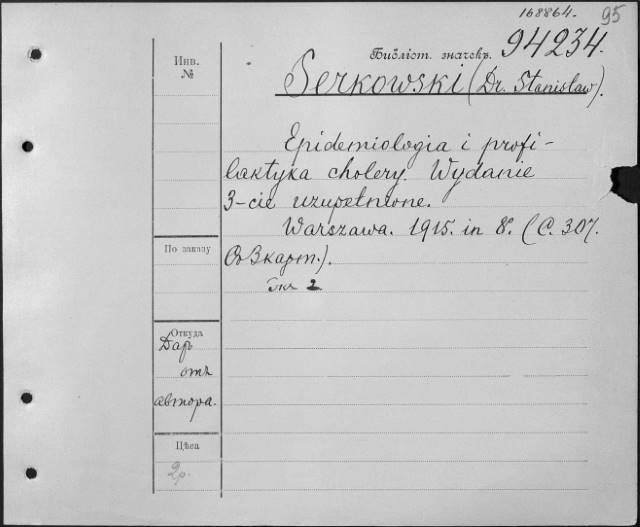 168864. 95
Инв.
№
Библіот. значекъ.
94234.
Serkowski (Dr. Stanisław).
Epidemiologia i profi-
laktyka cholery. Wydanie
3-cie uzupełnione.
Warszawa. 1915. in 8º. (С. 307.
Съ 3 карт.).
2
По заказу
Откуда
Даръ
отъ
автора.
Цѣна
2р.